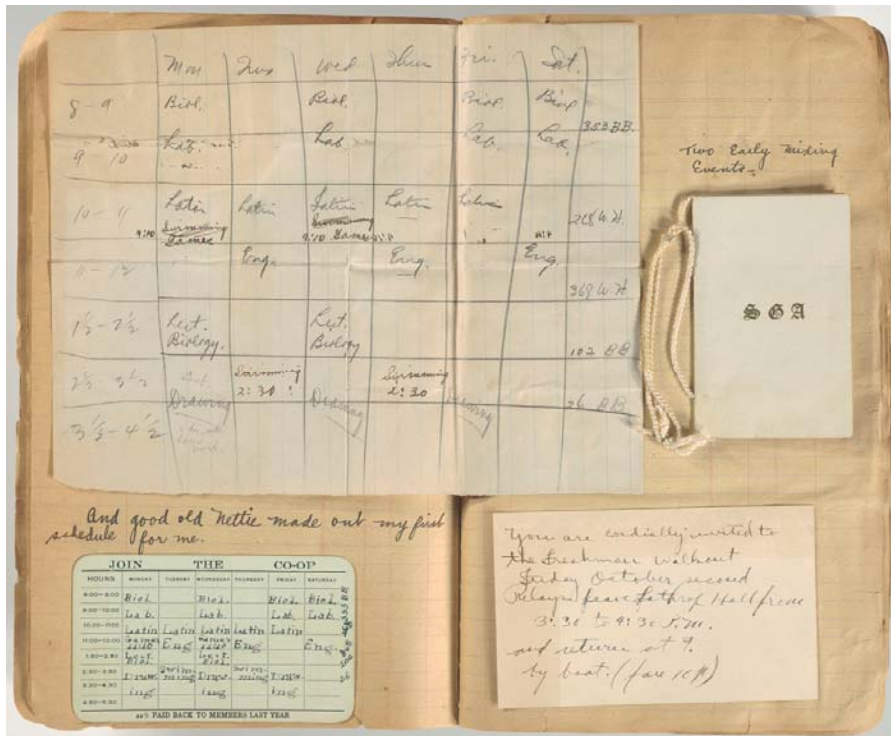 Mon Tues Wed Thur Fri. Sat.
8 - 9 Biol. Biol. Biol. Biol
353 BB.
9 - 10 Lab. Lab. Lab. Lab.
10 - 11 Latin Latin Latin Latin Latin
268 W.H.
Swimming Swimming
9:10 Games 9:10 Games
11 - 12 Eng. Eng. Eng.
369 W.H
1½ - 2½ Lect. Lect.
Biology. Biology
102 BB
2½ - 3½ Swimming Swimming
2:30 ! 2:30
Drawing Drawing Drawing
26 BB
3½ - 4½
Two Early Mixing
Events -
S G A
And good old Nettie made out my first
schedule for me.
JOIN THE CO-OP
HOURS MONDAY TUESDAY WEDNESDAY THURSDAY FRIDAY SATURDAY
8:00-9:00 Biol. Biol. Biol. Biol.
353 BB
9:00-10:00 Lab. Lab. Lab. Lab.
10:00-11:00 Latin Latin Latin Latin Latin
11:00-12:00 Games Eng Games Eng Eng.
1:30-2:30 Lect. Lect.
Biol. Biol.
2:30-3:30 Draw Swim- Draw- Swim- Draw-
ming ming
26
3:30-4:30 ing ing ing
4:30-5:30
PAID BACK TO MEMBERS LAST YEAR
You are cordially invited to
the Freshman Walkout
Friday October second
Relays leave Lathrop Hall from
3:30 to 4:30 P.M.
and return at 9.
by boat. (fare 10¢)